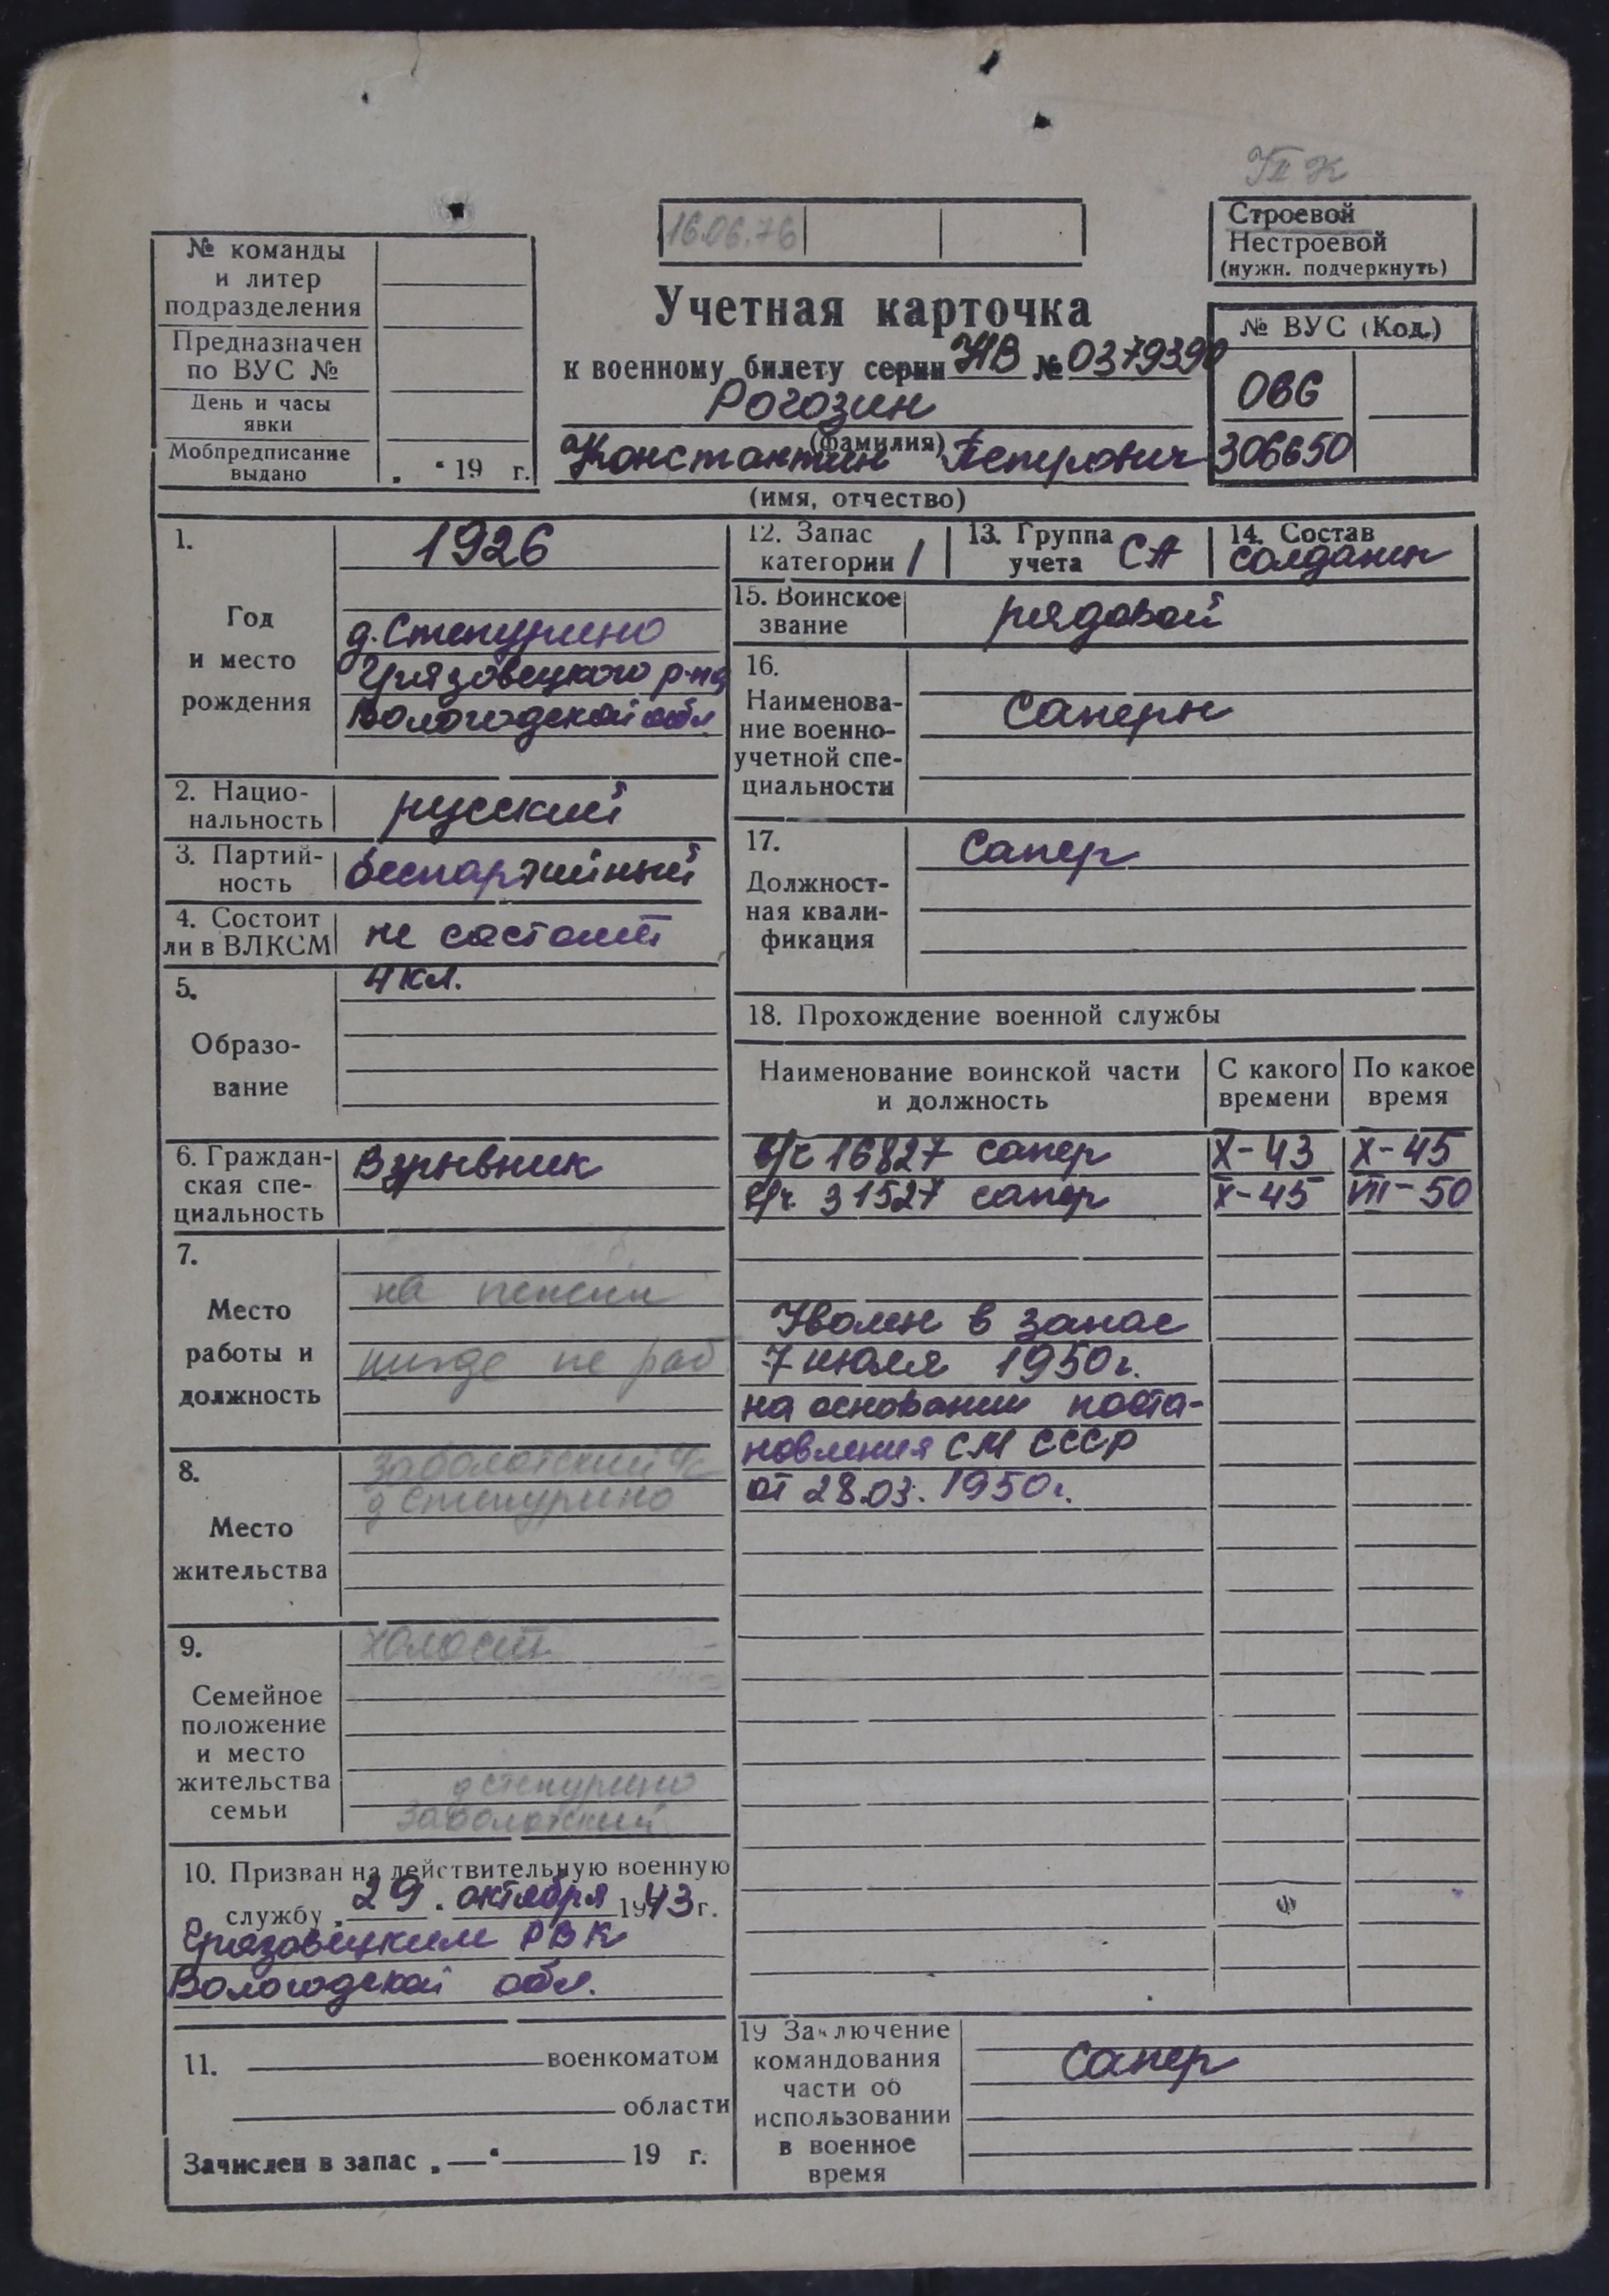 УП К
16.06.76
Строевой
Нестроевой
(нужн. подчеркнуть)
№ команды
и литер
подразделения
Предназначен
по ВУС №
День и часы
явки
Мобпредписание
выдано
„ “ 19 г.
Учетная карточка
к военному билету серии НВ № 0379390
Рогозин
(фамилия)
Константин Петрович
(имя, отчество)
№ ВУС (Код.)
ОВС
306650
1.
Год
и место
рождения
1926
д. Степурино
Грязовецкого р-на
Вологодской обл.
2. Нацио-
нальность
русский
3. Партий-
ность
беспартийный
4. Состоит
ли в ВЛКСМ
не состоит
5.
Образо-
вание
4 кл.
6. Граждан-
ская спе-
циальность
Взрывник
7.
Место
работы и
должность
на пенсии
нигде не раб
8.
Место
жительства
Заболотский с/с
д Степурино
9.
Семейное
положение
и место
жительства
семьи
холост
д Степурино
Заболотский
10. Призван на действительную военную
службу „ 29 “ октября 1943 г.
Грязовецким РВК
Вологодской обл.
11. военкоматом
области
Зачислен в запас „—“ 19 г.
12. Запас
категории 1
13. Группа
учета СА
14. Состав
солдаты
15. Воинское
звание
рядовой
16.
Наименова-
ние военно-
учетной спе-
циальности
Саперы
17.
Должност-
ная квали-
фикация
Сапер
18. Прохождение военной службы
Наименование воинской части
и должность
С какого
времени
По какое
время
в/ч 16827 сапер X-43 X-45
в/ч. 31527 сапер X-45 VIII-50
Уволен в запас
7 июля 1950г.
на основании поста-
новления СМ СССР
от 28.03. 1950г.
19 Заключение
командования
части об
использовании
в военное
время
Сапер